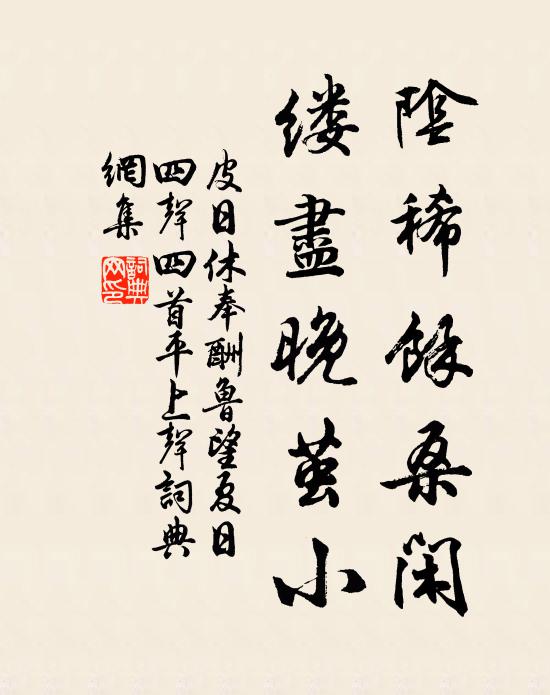 陰稀餘桑閑
缕盡晚茧小
皮日休奉酬鲁望夏日
四聲四首平上聲詞典
網集
詞典網印